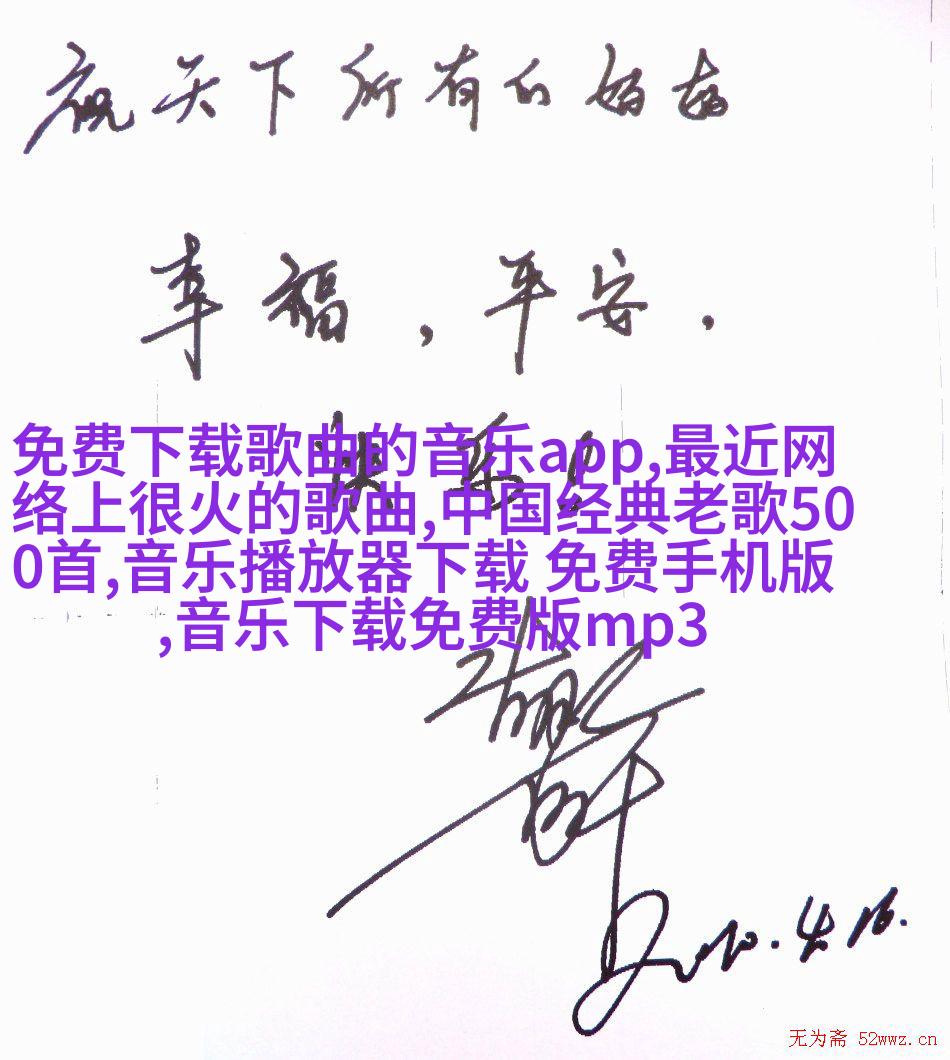 祝天下所有的妈妈
幸福，平安，
快乐！
免费下载歌曲的音乐app,最近网
络上很火的歌曲,中国经典老歌50
0首,音乐播放器下载 免费手机版
,音乐下载免费版mp3
2010.4.16.
无为斋 52wwz.cn